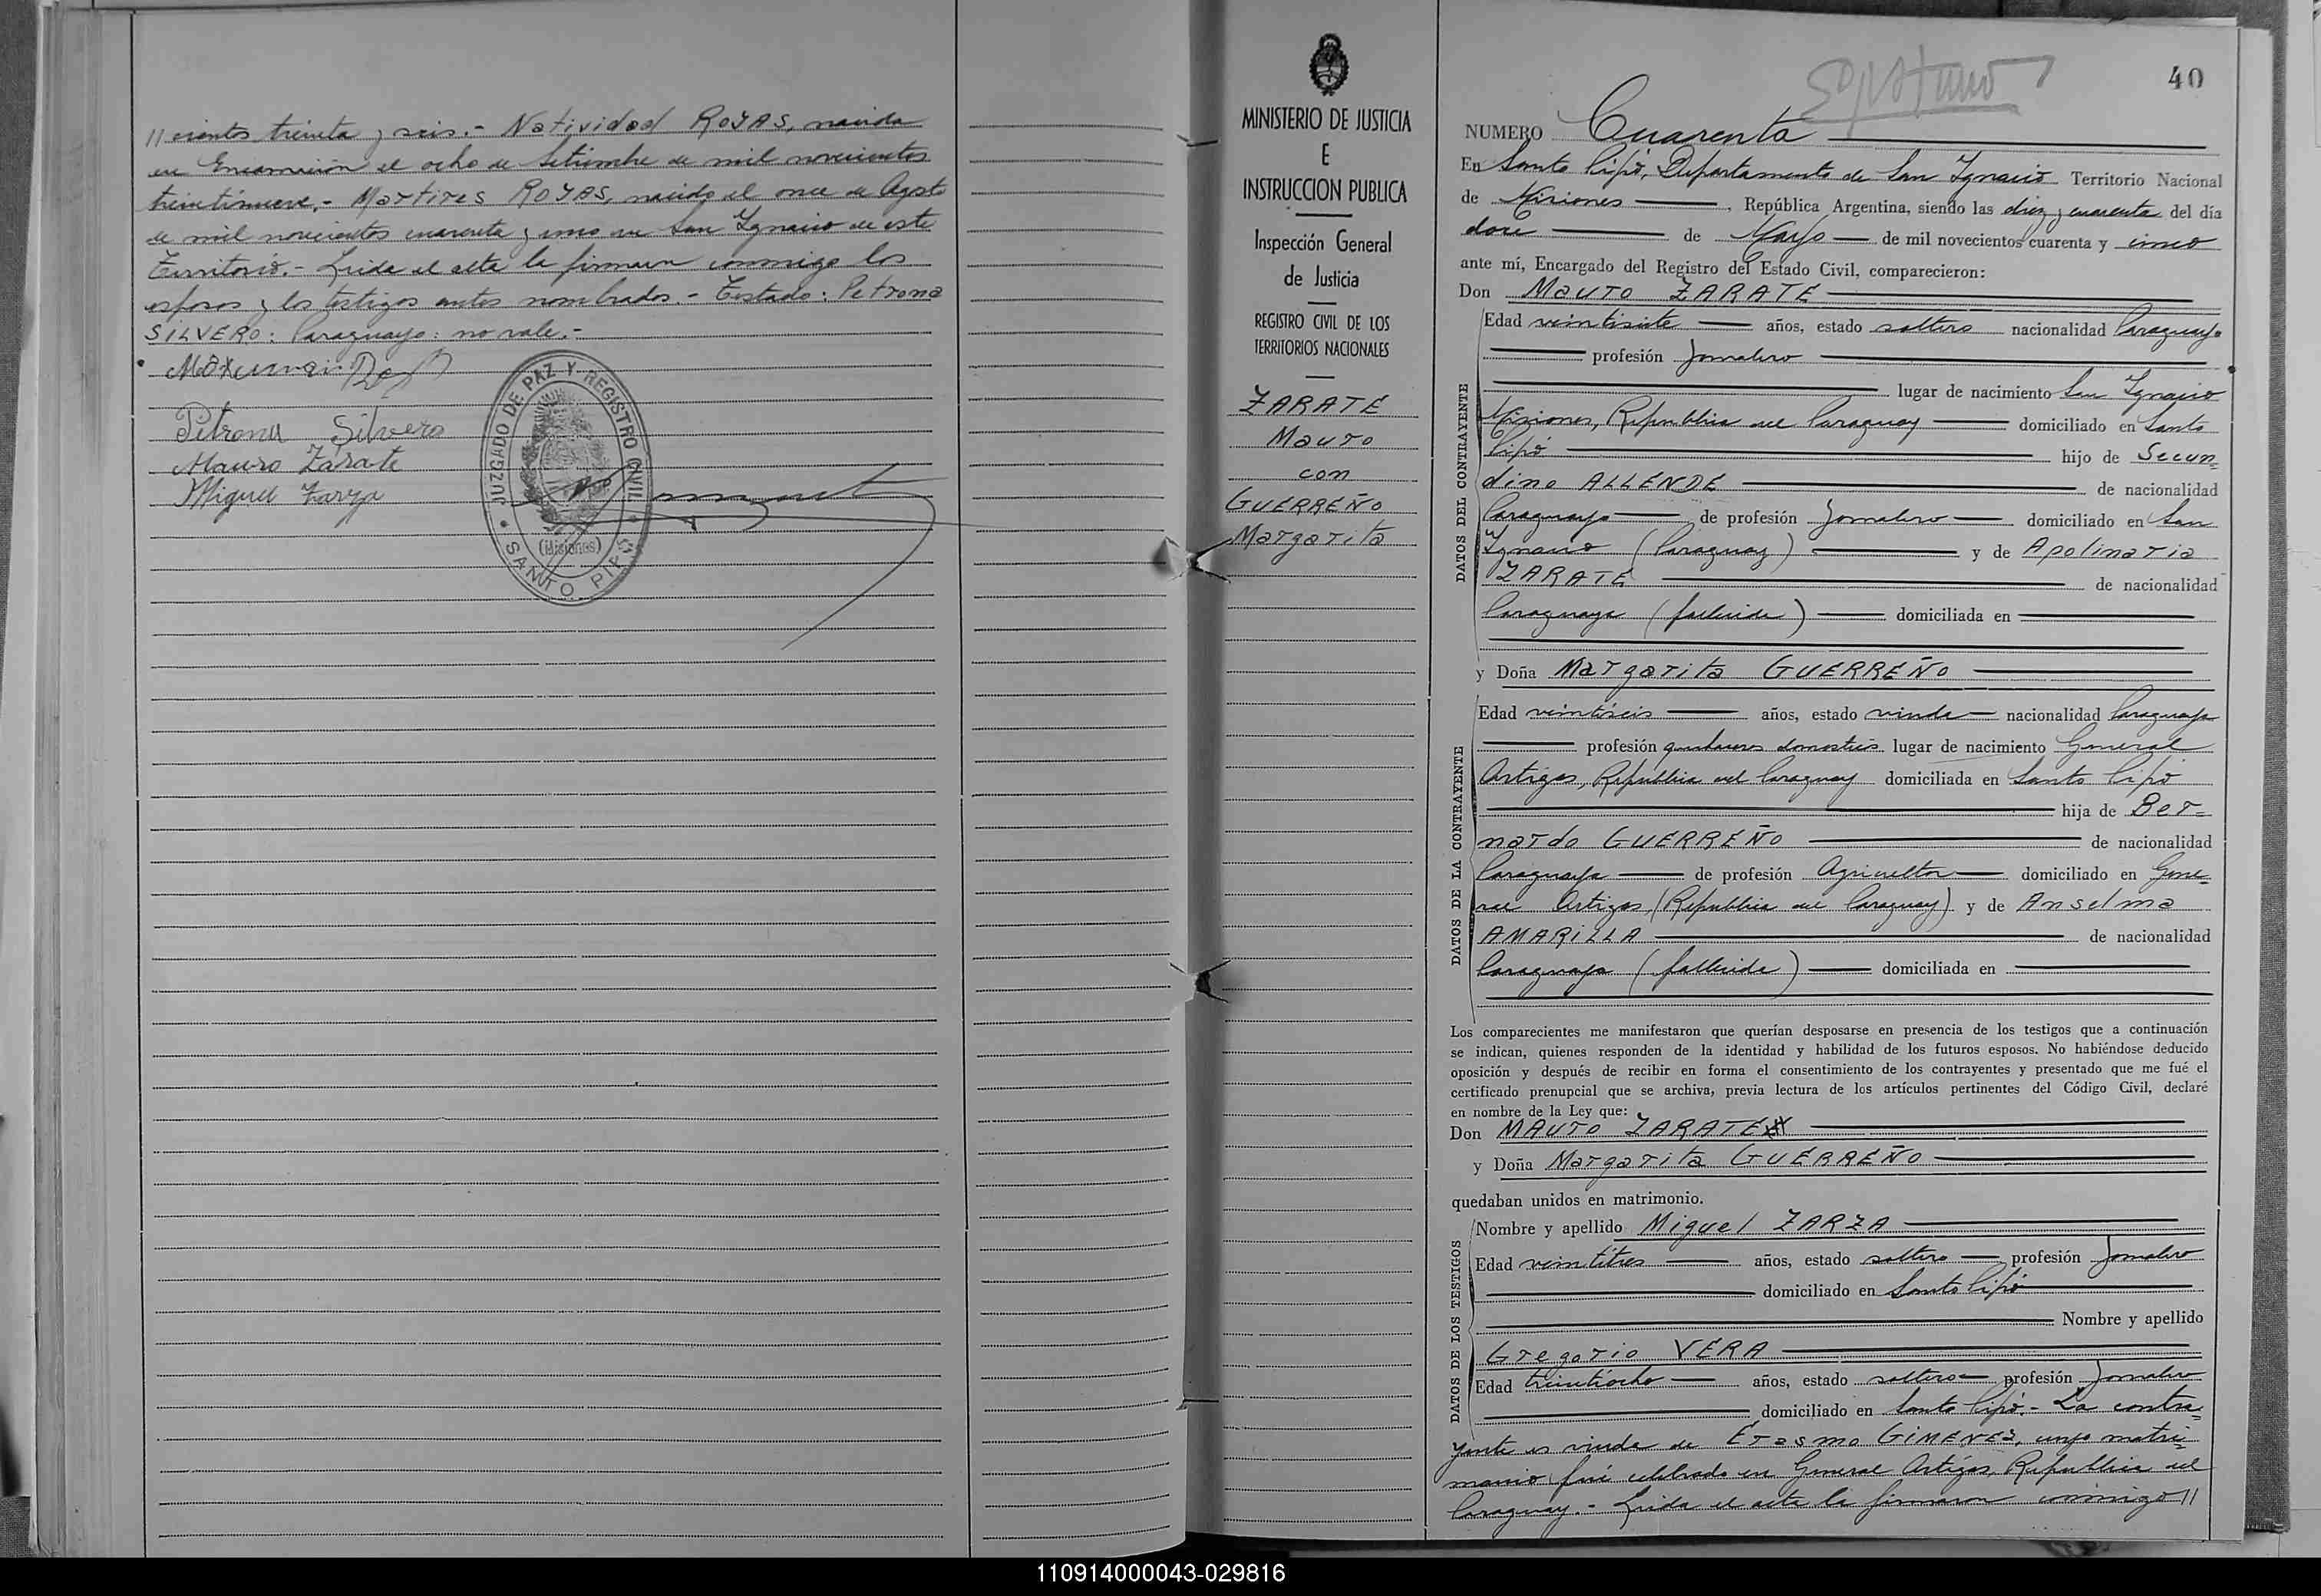 // cientos treinta y seis.- Natividad ROJAS, nacida
en Encarnación el ocho de Setiembre de mil novecientos
treintinueve.- Martires ROJAS, nacido el once de Agosto
de mil novecientos cuarenta y uno en San Ignacio de este
Territorio.- Leida el acta la firmaron conmigo los
esposos y los testigos antes nombrados.- Testado: Petrona
SILVERO: Paraguayo: no vale.-
Petrona Silvero
Mauro Zarate
Miguel Zarza
JUZGADO DE PAZ Y REGISTRO CIVIL
(Misiones)
SANTO PIPO
MINISTERIO DE JUSTICIA
E
INSTRUCCION PUBLICA
Inspección General
de Justicia
REGISTRO CIVIL DE LOS
TERRITORIOS NACIONALES
ZARATE
Mauro
con
GUERREÑO
Margarita
40
NUMERO Cuarenta
En Santo Pipó, Departamento de San Ignacio Territorio Nacional
de Misiones, República Argentina, siendo las diez y cuarenta del día
doce de Mayo de mil novecientos cuarenta y cinco
ante mí, Encargado del Registro del Estado Civil, comparecieron:
Don Mauro ZARATE
Edad veintisiete años, estado soltero nacionalidad Paraguayo
profesión Jornalero
lugar de nacimiento San Ignacio
Misiones, Republica del Paraguay domiciliado en Santo
Pipó hijo de Secun=
dino ALLENDE de nacionalidad
Paraguayo de profesión Jornalero domiciliado en San
Ignacio (Paraguay) y de Apolinaria
ZARATE de nacionalidad
Paraguaya (fallecida) domiciliada en
DATOS DEL CONTRAYENTE
y Doña Margarita GUERREÑO
Edad veintiseis años, estado viuda nacionalidad Paraguaya
profesión quehaceres domesticos lugar de nacimiento General
Artigas, Republica del Paraguay domiciliada en Santo Pipó
hija de Ber=
nardo GUERREÑO de nacionalidad
Paraguaya de profesión Agricultor domiciliado en Gene=
ral Artigas, (Republica del Paraguay) y de Anselma
AMARILLA de nacionalidad
Paraguaya (fallecida) domiciliada en
DATOS DE LA CONTRAYENTE
Los comparecientes me manifestaron que querían desposarse en presencia de los testigos que a continuación
se indican, quienes responden de la identidad y habilidad de los futuros esposos. No habiéndose deducido
oposición y después de recibir en forma el consentimiento de los contrayentes y presentado que me fué el
certificado prenupcial que se archiva, previa lectura de los artículos pertinentes del Código Civil, declaré
en nombre de la Ley que:
Don MAURO ZARATE
y Doña Margarita GUERREÑO
quedaban unidos en matrimonio.
Nombre y apellido Miguel ZARZA
Edad veintitres años, estado soltero profesión Jornalero
domiciliado en Santo Pipó
Nombre y apellido
Gregorio VERA
Edad treintiocho años, estado soltero profesión Jornalero
domiciliado en Santo Pipó.- La contra=
DATOS DE LOS TESTIGOS
yente es viuda de Erasmo GIMENEZ, cuyo matri=
monio fué celebrado en General Artigas, Republica del
Paraguay.- Leida el acta la firmaron conmigo //
110914000043-029816